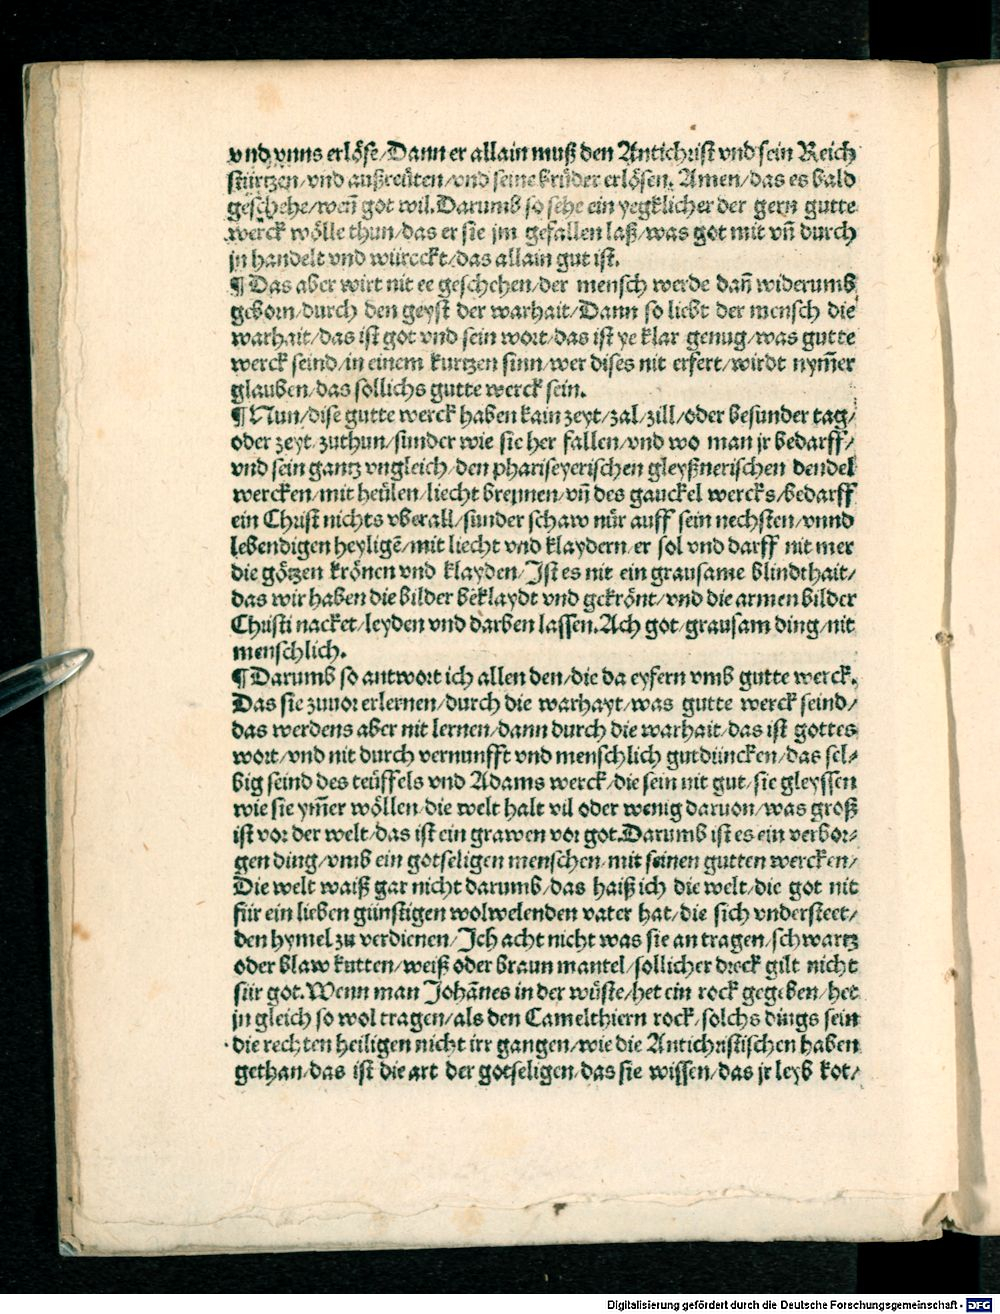 vnd vnns erlöse/Dann er allain muß den Antichrist vnd sein Reich
stürtzen/vnd außreüten/vnd seine brüder erlösen. Amen/das es bald
geschehe/weñ got wil. Darumb so sehe ein yegklicher der gern gutte
werck wölle thun/das er sie jm gefallen laß/was got mit vñ durch
jn handelt vnd würcckt/das allain gut ist.
¶ Das aber wirt nit ee geschehen/der mensch werde dañ widerumb
geborn/durch den geyst der warhait/Dann so liebt der mensch die
warhait/das ist got vnd sein wort/das ist ye klar genug/was gutte
werck seind/in einem kurtzen sinn/wer dises nit erfert/wirdt nym̃er
glauben/das sollichs gutte werck sein.
¶ Nun/dise gutte werck haben kain zeyt/zal/zill/oder besunder tag/
oder zeyt/zuthun/sunder wie sie her fallen/vnd wo man jr bedarff/
vnd sein gantz vngleich/den phariseyerischen gleyßnerischen dendel
wercken/mit heülen/liecht brennen/vñ des gauckel wercks/bedarff
ein Christ nichts vberall/sunder schaw nür auff sein nechsten/vnnd
lebendigen heyligē/mit liecht vnd klaydern/er sol vnd darff nit mer
die götzen krönen vnd klayden/Ist es nit ein grausame blindthait/
das wir haben die bilder beklaydt vnd gekrönt/vnd die armen bilder
Christi nacket/leyden vnd darben lassen. Ach got/grausam ding/nit
menschlich.
¶ Darumb so antwort ich allen den/die da eyfern vmb gutte werck.
Das sie zuuor erlernen/durch die warhayt/was gutte werck seind/
das werdens aber nit lernen/dann durch die warhait/das ist gottes
wort/vnd nit durch vernunfft vnd menschlich gutdüncken/das sel-
big seind des teüffels vnd Adams werck/die sein nit gut/sie gleyssen
wie sie ym̃er wöllen/die welt halt vil oder wenig daruon/was groß
ist vor der welt/das ist ein grawen vor got. Darumb ist es ein verbor-
gen ding/vmb ein gotseligen menschen/mit seinen gutten wercken/
Die welt waiß gar nicht darumb/das haiß ich die welt/die got nit
für ein lieben günstigen wolwelenden vater hat/die sich vndersteet/
den hymel zu verdienen/Ich acht nicht was sie an tragen/schwartz
oder blaw kutten/weiß oder braun mantel/sollicher dreck gilt nicht
für got. Wenn man Johañes in der wüste/het ein rock gegeben/het
jn gleich so wol tragen/als den Camelthiern rock/solchs dings sein
die rechten heiligen nicht irr gangen/wie die Antichristischen haben
gethan/das ist die art der gotseligen/das sie wissen/das jr leyb kot/
Digitalisierung gefördert durch die Deutsche Forschungsgemeinschaft - DFG